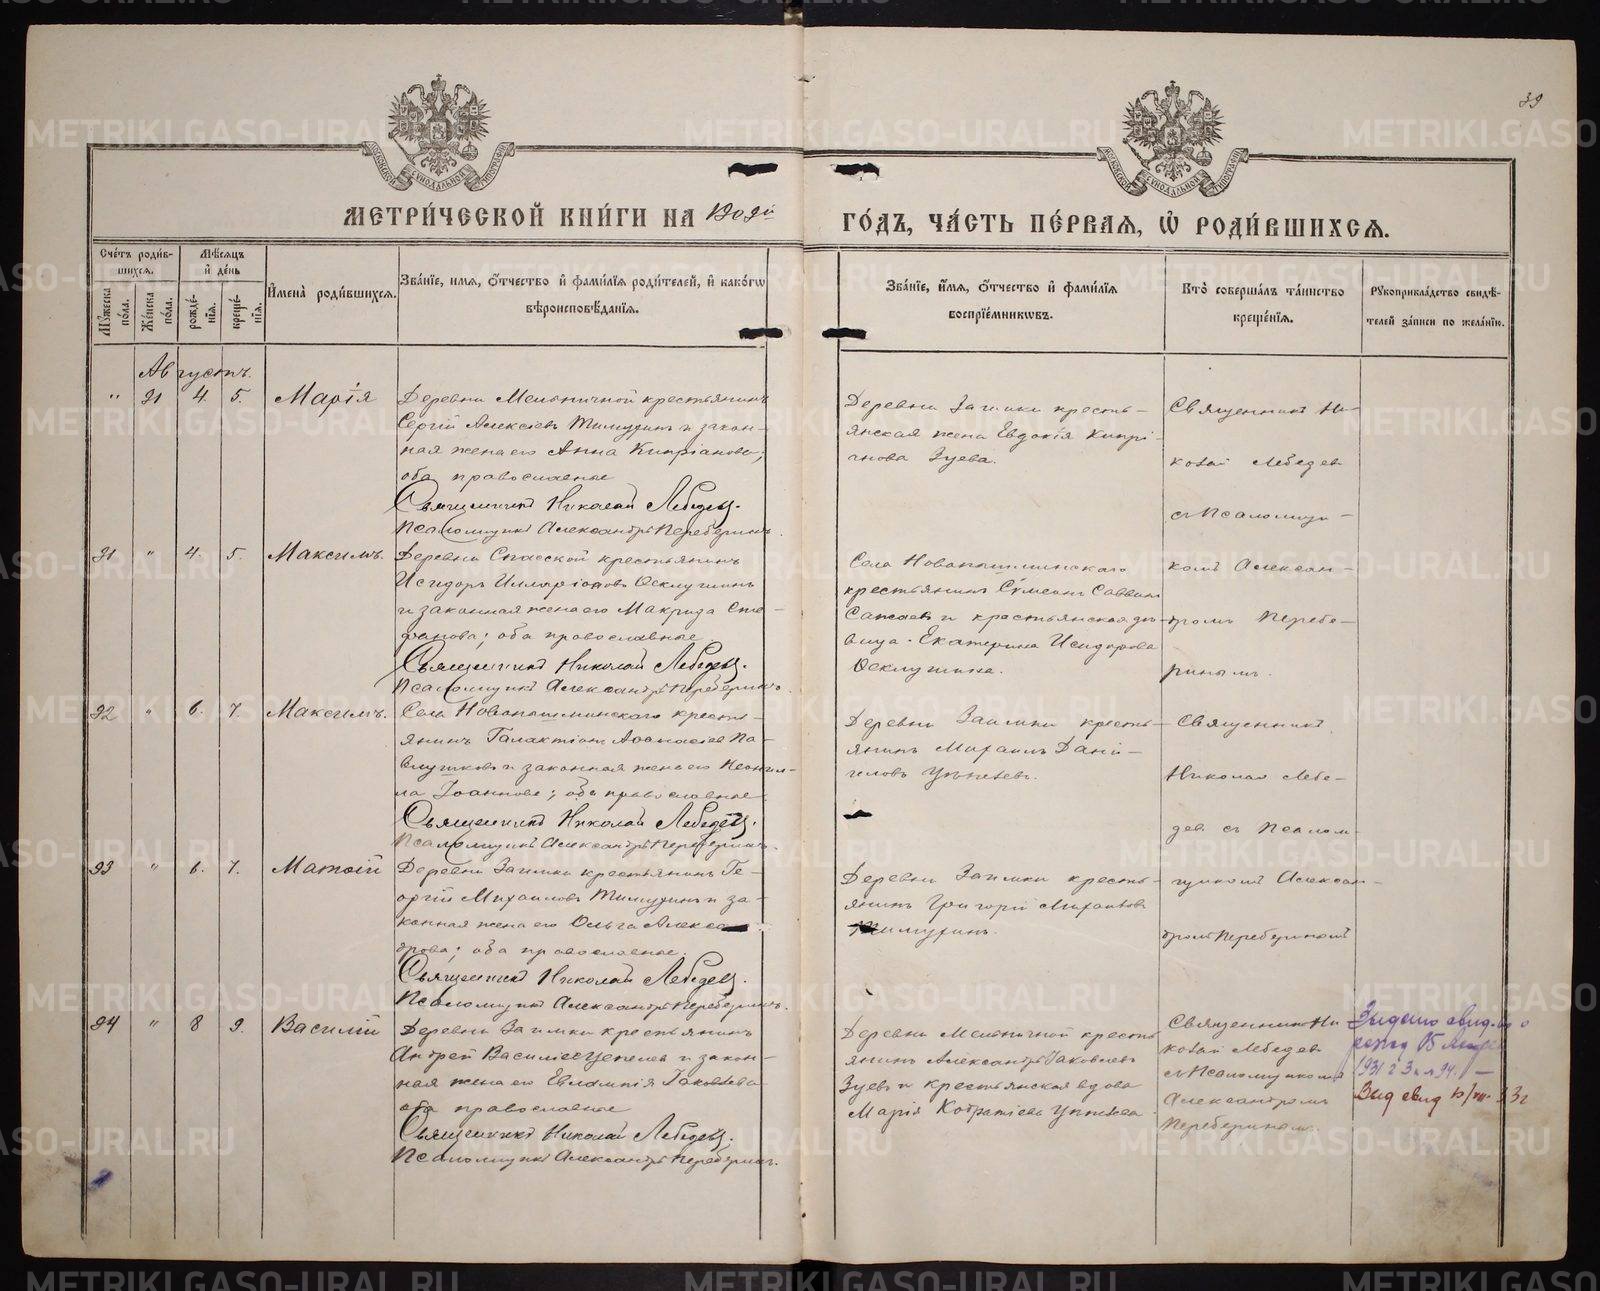 39
МЕТРИ́ЧЕСКОЙ КНИ́ГИ НА 1909й
ГО́ДЪ, ЧА́СТЬ ПЕ́РВАЯ, Ѡ РОДИ́ВШИХСѦ.
Сче́тъ роди́в-
шихсѧ.
Мꙋ́жеска по́ла.
Же́нска по́ла.
Мѣ́сѧцъ
и҆ де́нь
рожде́нїѧ.
креще́нїѧ.
И҆мена̀ роди́вшихсѧ.
Зва́нїе, и҆мѧ, о҆́тчество и҆ фами́лїѧ роди́телей, и҆ како́гѡ
вѣроисповѣ́данїѧ.
Зва́нїе, и҆́мѧ, о҆́тчество и҆ фами́лїѧ
воспрїе́мникѡвъ.
Кто̀ соверша́лъ та́инство
креще́нїѧ.
Рꙋкоприкла́дство свидѣ́-
телей за́писи по жела́нїю.
Августъ.
" 31 4. 5. Марія
Деревни Мельничной крестьянинъ
Сергій Алексіевъ Тимуринъ и закон-
ная жена его Анна Кипріанова;
оба православные
Священникъ Николай Лебедевъ.
Псаломщикъ Александръ Переберинъ.
Деревни Заимки кресть-
янская жена Евдокія Кипрі-
анова Зуева.
Священникъ Ни-
колай Лебедев
съ Псаломщи-
31 " 4. 5. Максимъ.
Деревни Спасской крестьянинъ
Исидоръ Илларіоновъ Осклушинъ
и законная жена его Макрида Сте-
фанова; оба православные.
Священникъ Николай Лебедевъ.
Псаломщикъ Александръ Переберинъ.
Села Новопышминскаго
крестьянинъ Сѵмеонъ Саввинъ
и крестьянская дѣ-
вица Екатерина Исидорова
Осклушина.
комъ Алексан-
дромъ Перебе-
ринымъ.
32 " 6. 7. Максимъ.
Села Новопышминскаго кресть-
янинъ Галактіонъ Аѳанасіевъ Па-
влушковъ и законная жена его Неони-
ла Іоаннова; оба православные
Священникъ Николай Лебедевъ.
Псаломщикъ Александръ Переберинъ.
Деревни Заимки кресть-
янинъ Михаилъ Дані-
иловъ
Священникъ
Николай Лебе-
дев съ Псалом-
33 " 6. 7. Матѳій
Деревни Заимки крестьянинъ Ге-
оргій Михаиловъ Тимуринъ и за-
конная жена его Ольга Алексан-
дрова; оба православные.
Священникъ Николай Лебедевъ.
Псаломщикъ Александръ Переберинъ.
Деревни Заимки кресть-
янинъ Григорій Михаиловъ
Тимуринъ.
щикомъ Алексан-
дромъ Переберинымъ
34 " 8 9. Василій
Деревни Заимки крестьянинъ
Андрей Василіевъ Цепелевъ и закон-
ная жена его Евлампія Іаковлева
оба православные
Священникъ Николай Лебедевъ.
Псаломщикъ Александръ Переберинъ.
Деревни Мельничной кресть-
янинъ Александръ Іаковлевъ
Зуевъ и крестьянская вдова
Марія Кодратіева
Священникъ Ни-
колай Лебедев
съ Псаломщикомъ
Александромъ
Переберинымъ.
Выдано свид-во
Выд свид